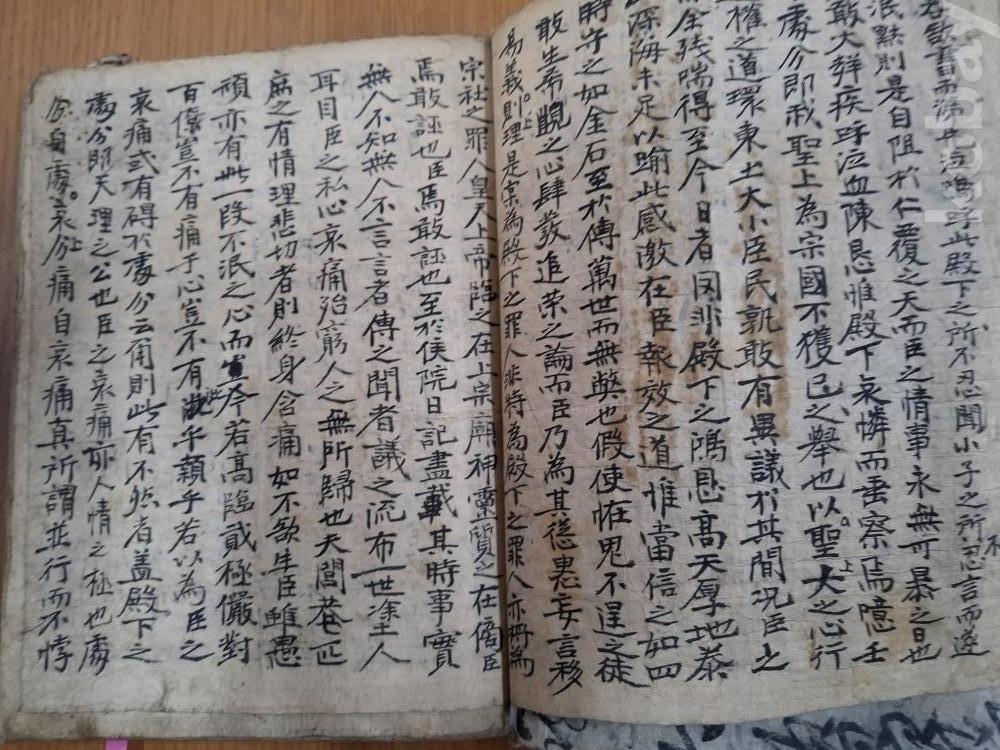 書而歸 嗚呼此殿下之所不忍聞小子之所忍言而遂
泯默則是自阻於仁覆之天而臣之情事永無可暴之日也
敢大聲疾呼泣血陳恳惟殿下哀憐而垂察焉噫壬
處分即我聖上為宗國不獲已之舉也以聖大之心行
權之道環東土大小臣民孰敢有異議於其間况臣之
全殘喘得至今日者罔非殿下之鴻恩高天厚地泰
深海未足以喻此感激在臣報效之道惟當信之如四
時守之如金石至於傳萬世而無獘也假使恠鬼不逞之徒
敢生希覬之心肆發追荣之論而臣乃為其慫慂妄言移
易義則理是為殿下之罪人非特為殿下之罪人亦將為
宗社之罪人皇天上帝臨之在上宗廟神靈質之在傍臣
焉敢誣也臣焉敢誣也至於侯院日記盡載其時事實
無人不知無人不言言者傳之聞者議之流布一世塗人
耳目臣之私心哀痛殆窮人之無所歸也夫閭巷匹
庶之有情理悲切者則終身含痛如不欲生臣雖愚
頑亦有此一段不泯之心而豈今若髙臨貳極儼對
百僚豈不有痛于心豈不有泚乎顙乎若以為臣之
哀痛或有碍於處分云爾則此有不然者盖殿下之
處分即天理之公也臣之哀痛亦人情之極也處
分自處哀分痛自哀痛真所謂並行而不悖